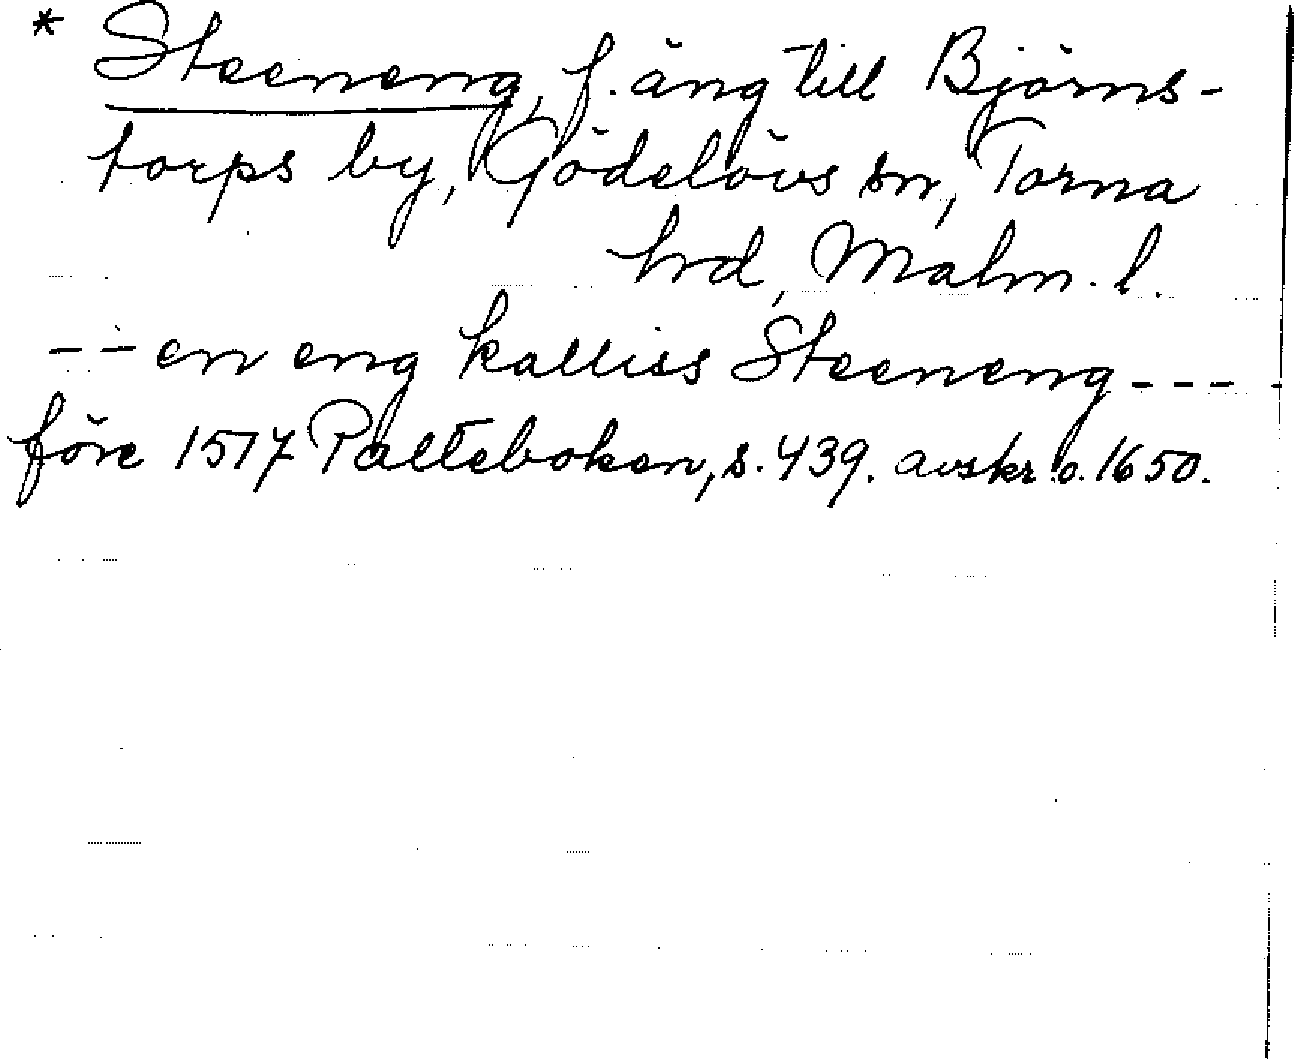 * Steeneng, f. äng till Björns-
torps by, Gödelövs sn, Torna
hrd, Malm. l.
- - en eng kalliss Steeneng - - - -
före 1517 Palteboken, s. 439. avskr. o. 1650.